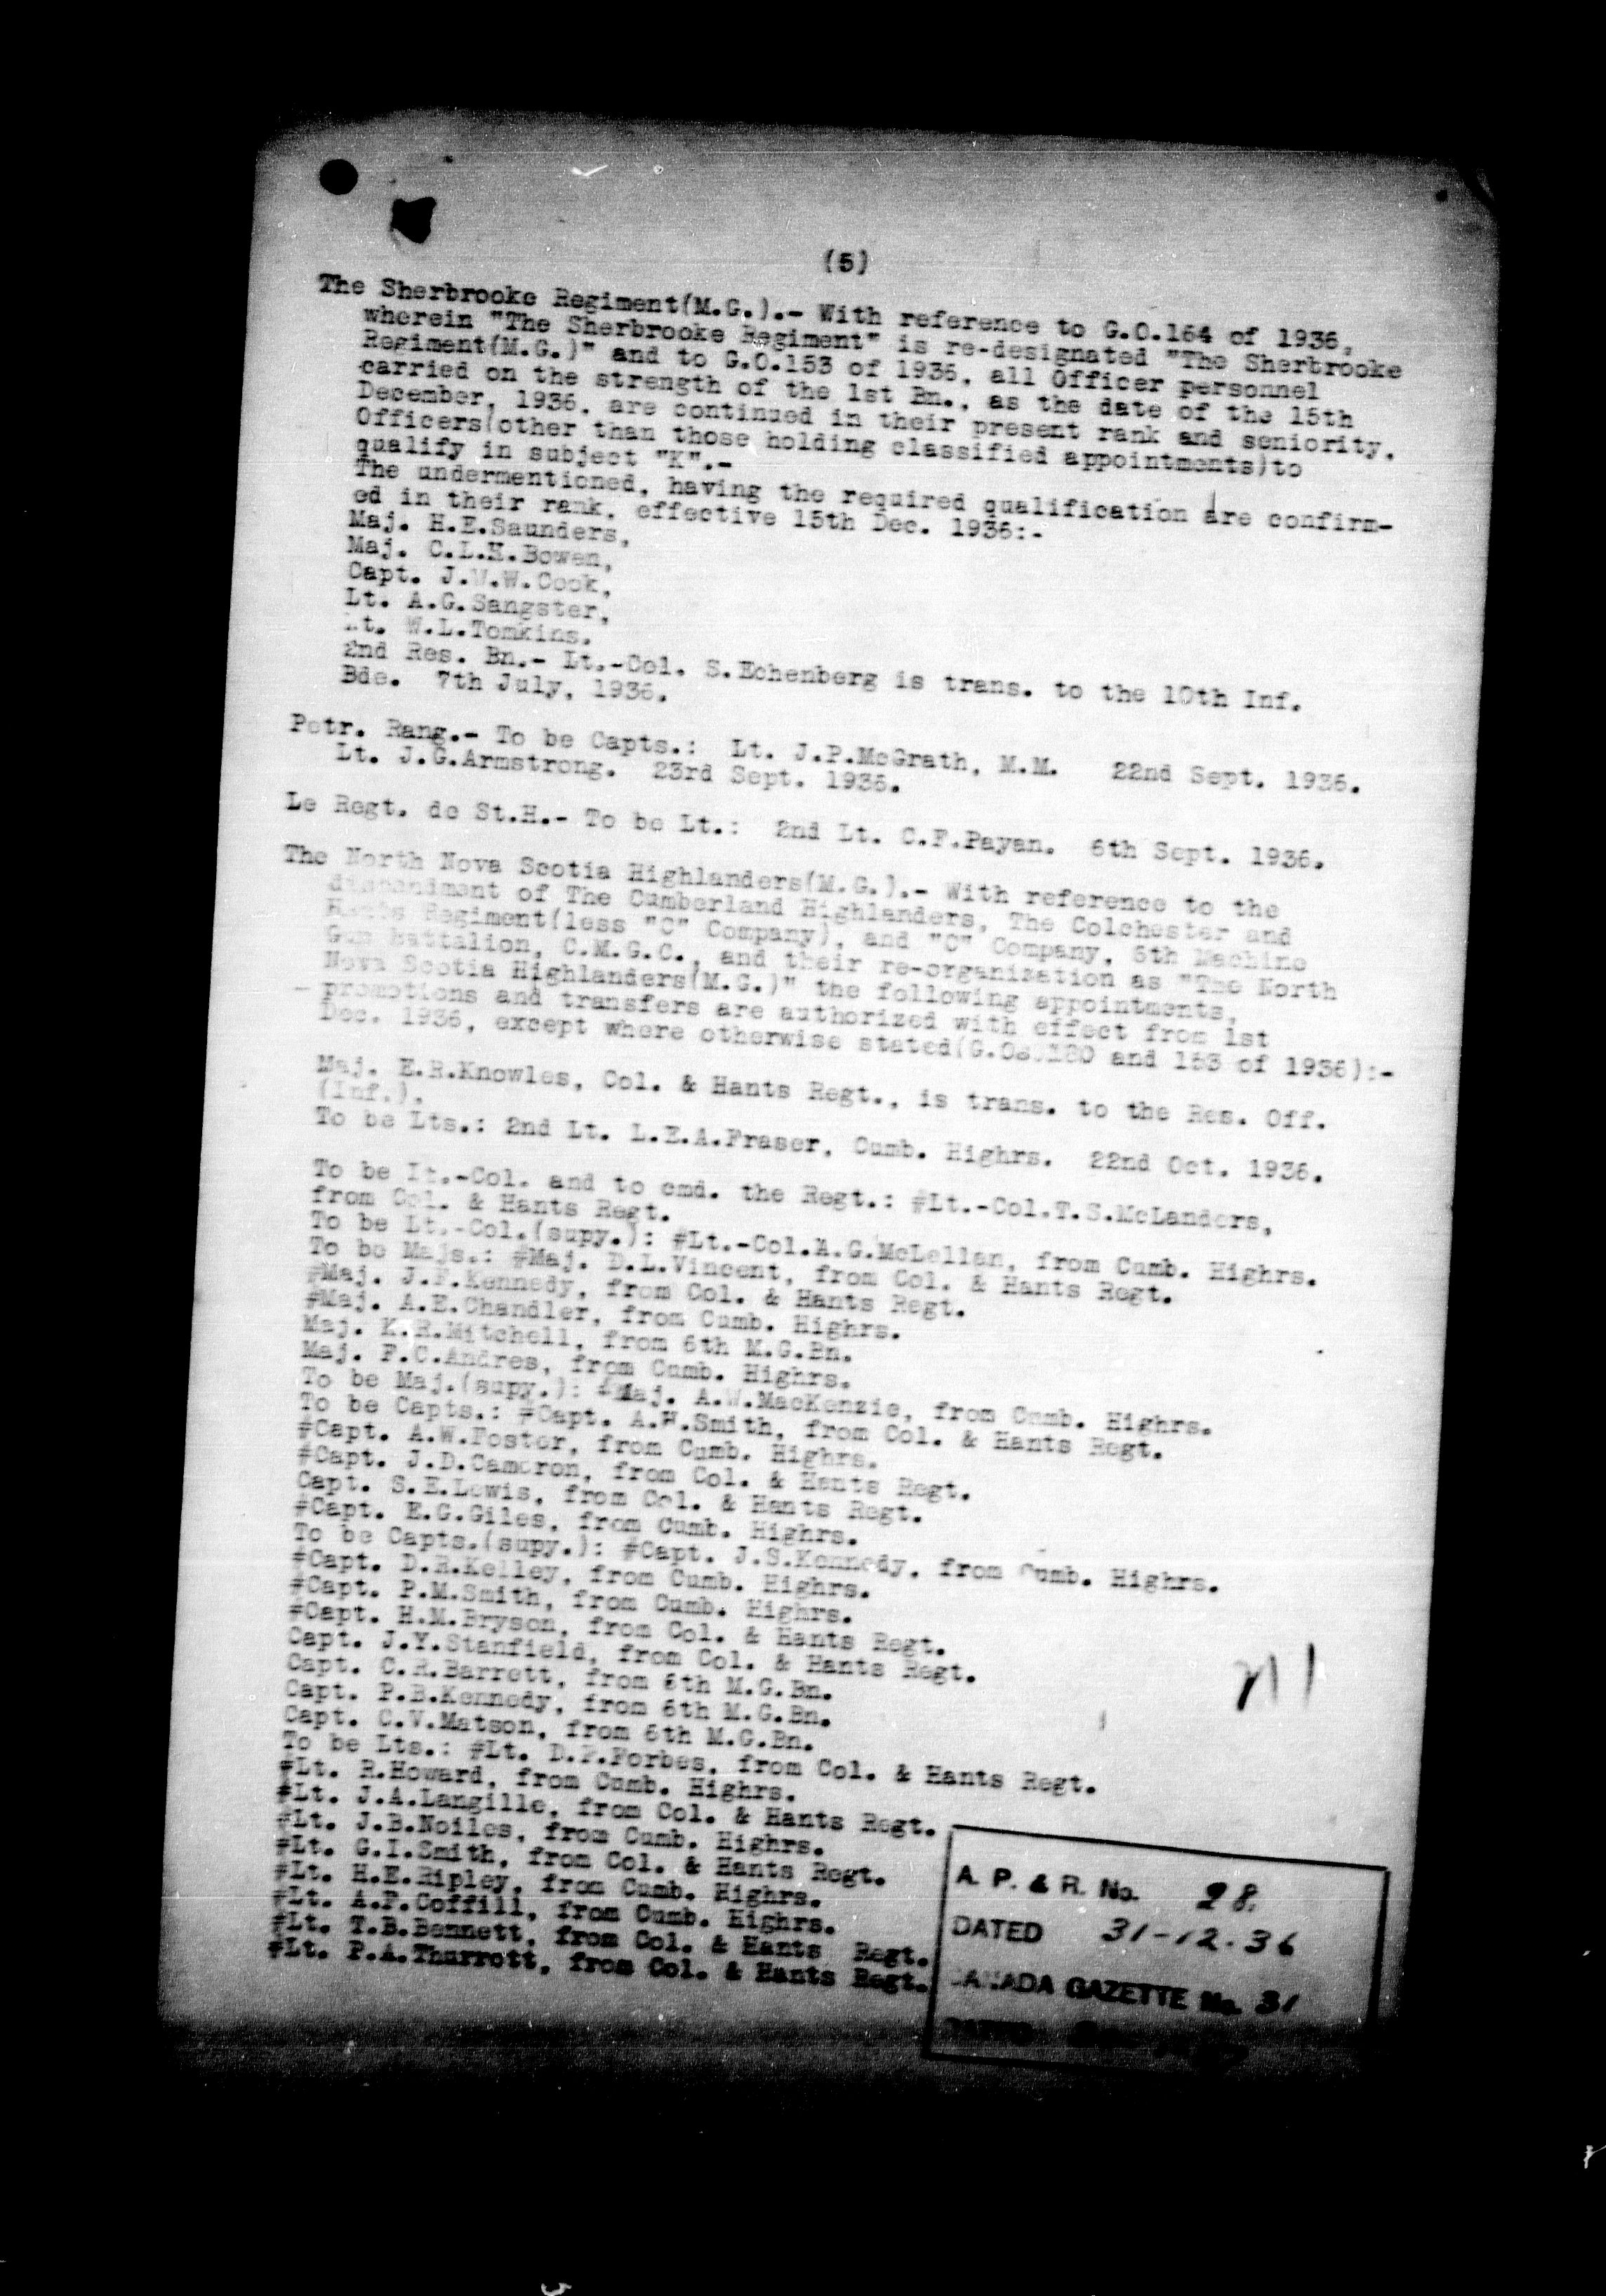 (5)
The Sherbrooke Regiment(M.G.).- With reference to G.O.164 of 1936,
wherein "The Sherbrooke Regiment" is re-designated "The Sherbrooke
Regiment(M.G.)" and to G.O.153 of 1936, all Officer personnel
carried on the strength of the 1st Bn., as the date of the 15th
December, 1936, are continued in their present rank and seniority.
Officers(other than those holding classified appointments)to
qualify in subject "K".-
The undermentioned, having the required qualification are confirm-
ed in their rank, effective 15th Dec. 1936:-
Maj. H.E.Saunders,
Maj. C.L.H.Bowen,
Capt. J.W.W.Cook,
Lt. A.G.Sangster,
Lt. W.L.Tomkins.
2nd Res. Bn.- Lt.-Col. S.Echenberg is trans. to the 10th Inf.
Bde. 7th July, 1936.
Petr. Rang.- To be Capts.: Lt. J.P.McGrath, M.M. 22nd Sept. 1936.
Lt. J.G.Armstrong. 23rd Sept. 1936.
Le Regt. de St.H.- To be Lt.: 2nd Lt. C.F.Payan. 6th Sept. 1936.
The North Nova Scotia Highlanders(M.G.).- With reference to the
disbandment of The Cumberland Highlanders, The Colchester and
Hants Regiment(less "C" Company), and "C" Company, 6th Machine
Gun Battalion, C.M.G.C., and their re-organization as "The North
Nova Scotia Highlanders(M.G.)" the following appointments,
promotions and transfers are authorized with effect from 1st
Dec. 1936, except where otherwise stated(G.Os. and 153 of 1936):-
Maj. E.R.Knowles, Col. & Hants Regt., is trans. to the Res. Off.
(Inf.).
To be Lts.: 2nd Lt. L.E.A.Fraser, Cumb. Highrs. 22nd Oct. 1936.
To be Lt.-Col. and to cmd. the Regt.: #Lt.-Col.T.S.McLanders,
from Col. & Hants Regt.
To be Lt.-Col.(supy.): #Lt.-Col.A.G.McLellan, from Cumb. Highrs.
To be Majs.: #Maj. D.L.Vincent, from Col. & Hants Regt.
#Maj. J.F.Kennedy, from Col. & Hants Regt.
#Maj. A.E.Chandler, from Cumb. Highrs.
Maj. K.R.Mitchell, from 6th M.G.Bn.
Maj. F.C.Andres, from Cumb. Highrs.
To be Maj.(supy.): #Maj. A.W.MacKenzie, from Cumb. Highrs.
To be Capts.: #Capt. A.H.Smith, from Col. & Hants Regt.
#Capt. A.W.Foster, from Cumb. Highrs.
#Capt. J.D.Cameron, from Col. & Hants Regt.
Capt. S.E.Lewis, from Col. & Hants Regt.
#Capt. E.G.Giles, from Cumb. Highrs.
To be Capts.(supy.): #Capt. J.S.Kennedy, from Cumb. Highrs.
#Capt. D.R.Kelley, from Cumb. Highrs.
#Capt. P.M.Smith, from Cumb. Highrs.
#Capt. H.M.Bryson, from Col. & Hants Regt.
Capt. J.Y.Stanfield, from Col. & Hants Regt.
Capt. C.R.Barrett, from 6th M.G.Bn.
Capt. P.B.Kennedy, from 6th M.G.Bn.
Capt. C.V.Matson, from 6th M.G.Bn.
To be Lts.: #Lt. D.F.Forbes, from Col. & Hants Regt.
#Lt. R.Howard, from Cumb. Highrs.
#Lt. J.A.Langille, from Col. & Hants Regt.
#Lt. J.B.Noiles, from Cumb. Highrs.
#Lt. G.I.Smith, from Col. & Hants Regt.
#Lt. H.E.Ripley, from Cumb. Highrs.
#Lt. A.P.Coffill, from Cumb. Highrs.
#Lt. T.B.Bennett, from Col. & Hants Regt.
#Lt. P.A.Thurrott, from Col. & Hants Regt.
A. P. & R. No. 28.
DATED 31-12-36
CANADA GAZETTE No. 31
DATED